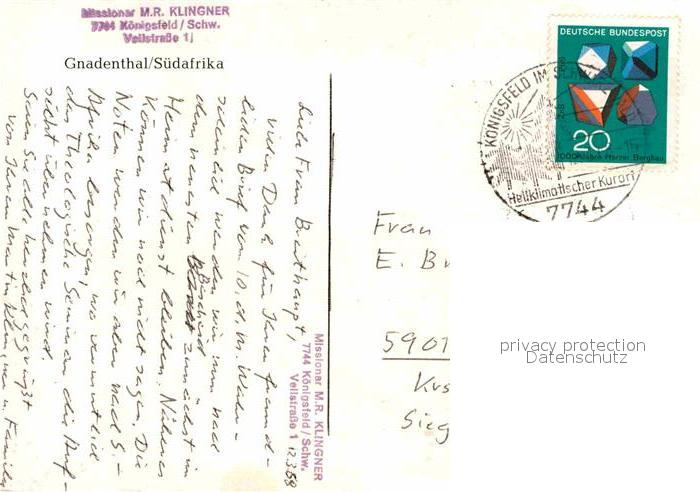 Missionar M.R. KLINGNER
7744 Königsfeld / Schw.
Veilstraße 1
Gnadenthal/Südafrika
DEUTSCHE BUNDESPOST
20
1000 Jahre Harzer Bergbau
KÖNIGSFELD IM SCHW
Heilklimatischer Kurort
7744
Frau
E. Br
5901
Krs
Sieg
privacy protection
Datenschutz
Missionar M.R. KLINGNER
7744 Königsfeld / Schw.
Veilstraße 1
12.3.68
Liebe Frau Breithaupt,
vielen Dank für Ihren freund-
lichen Brief vom 10. d. M. Wahr-
scheinlich werden wir nun nach
dem neuesten Bescheid zunächst im
Heimatdienst bleiben. Näheres
können wir noch nicht sagen. Die
Noten werden wir aber nach S.-
Afrika besorgen, wo vermutlich
das Theologische Seminar die Auf-
sicht übernehmen wird.
Seien Sie alle herzlich gegrüßt
von Ihrem Martin Klingner u. Familie